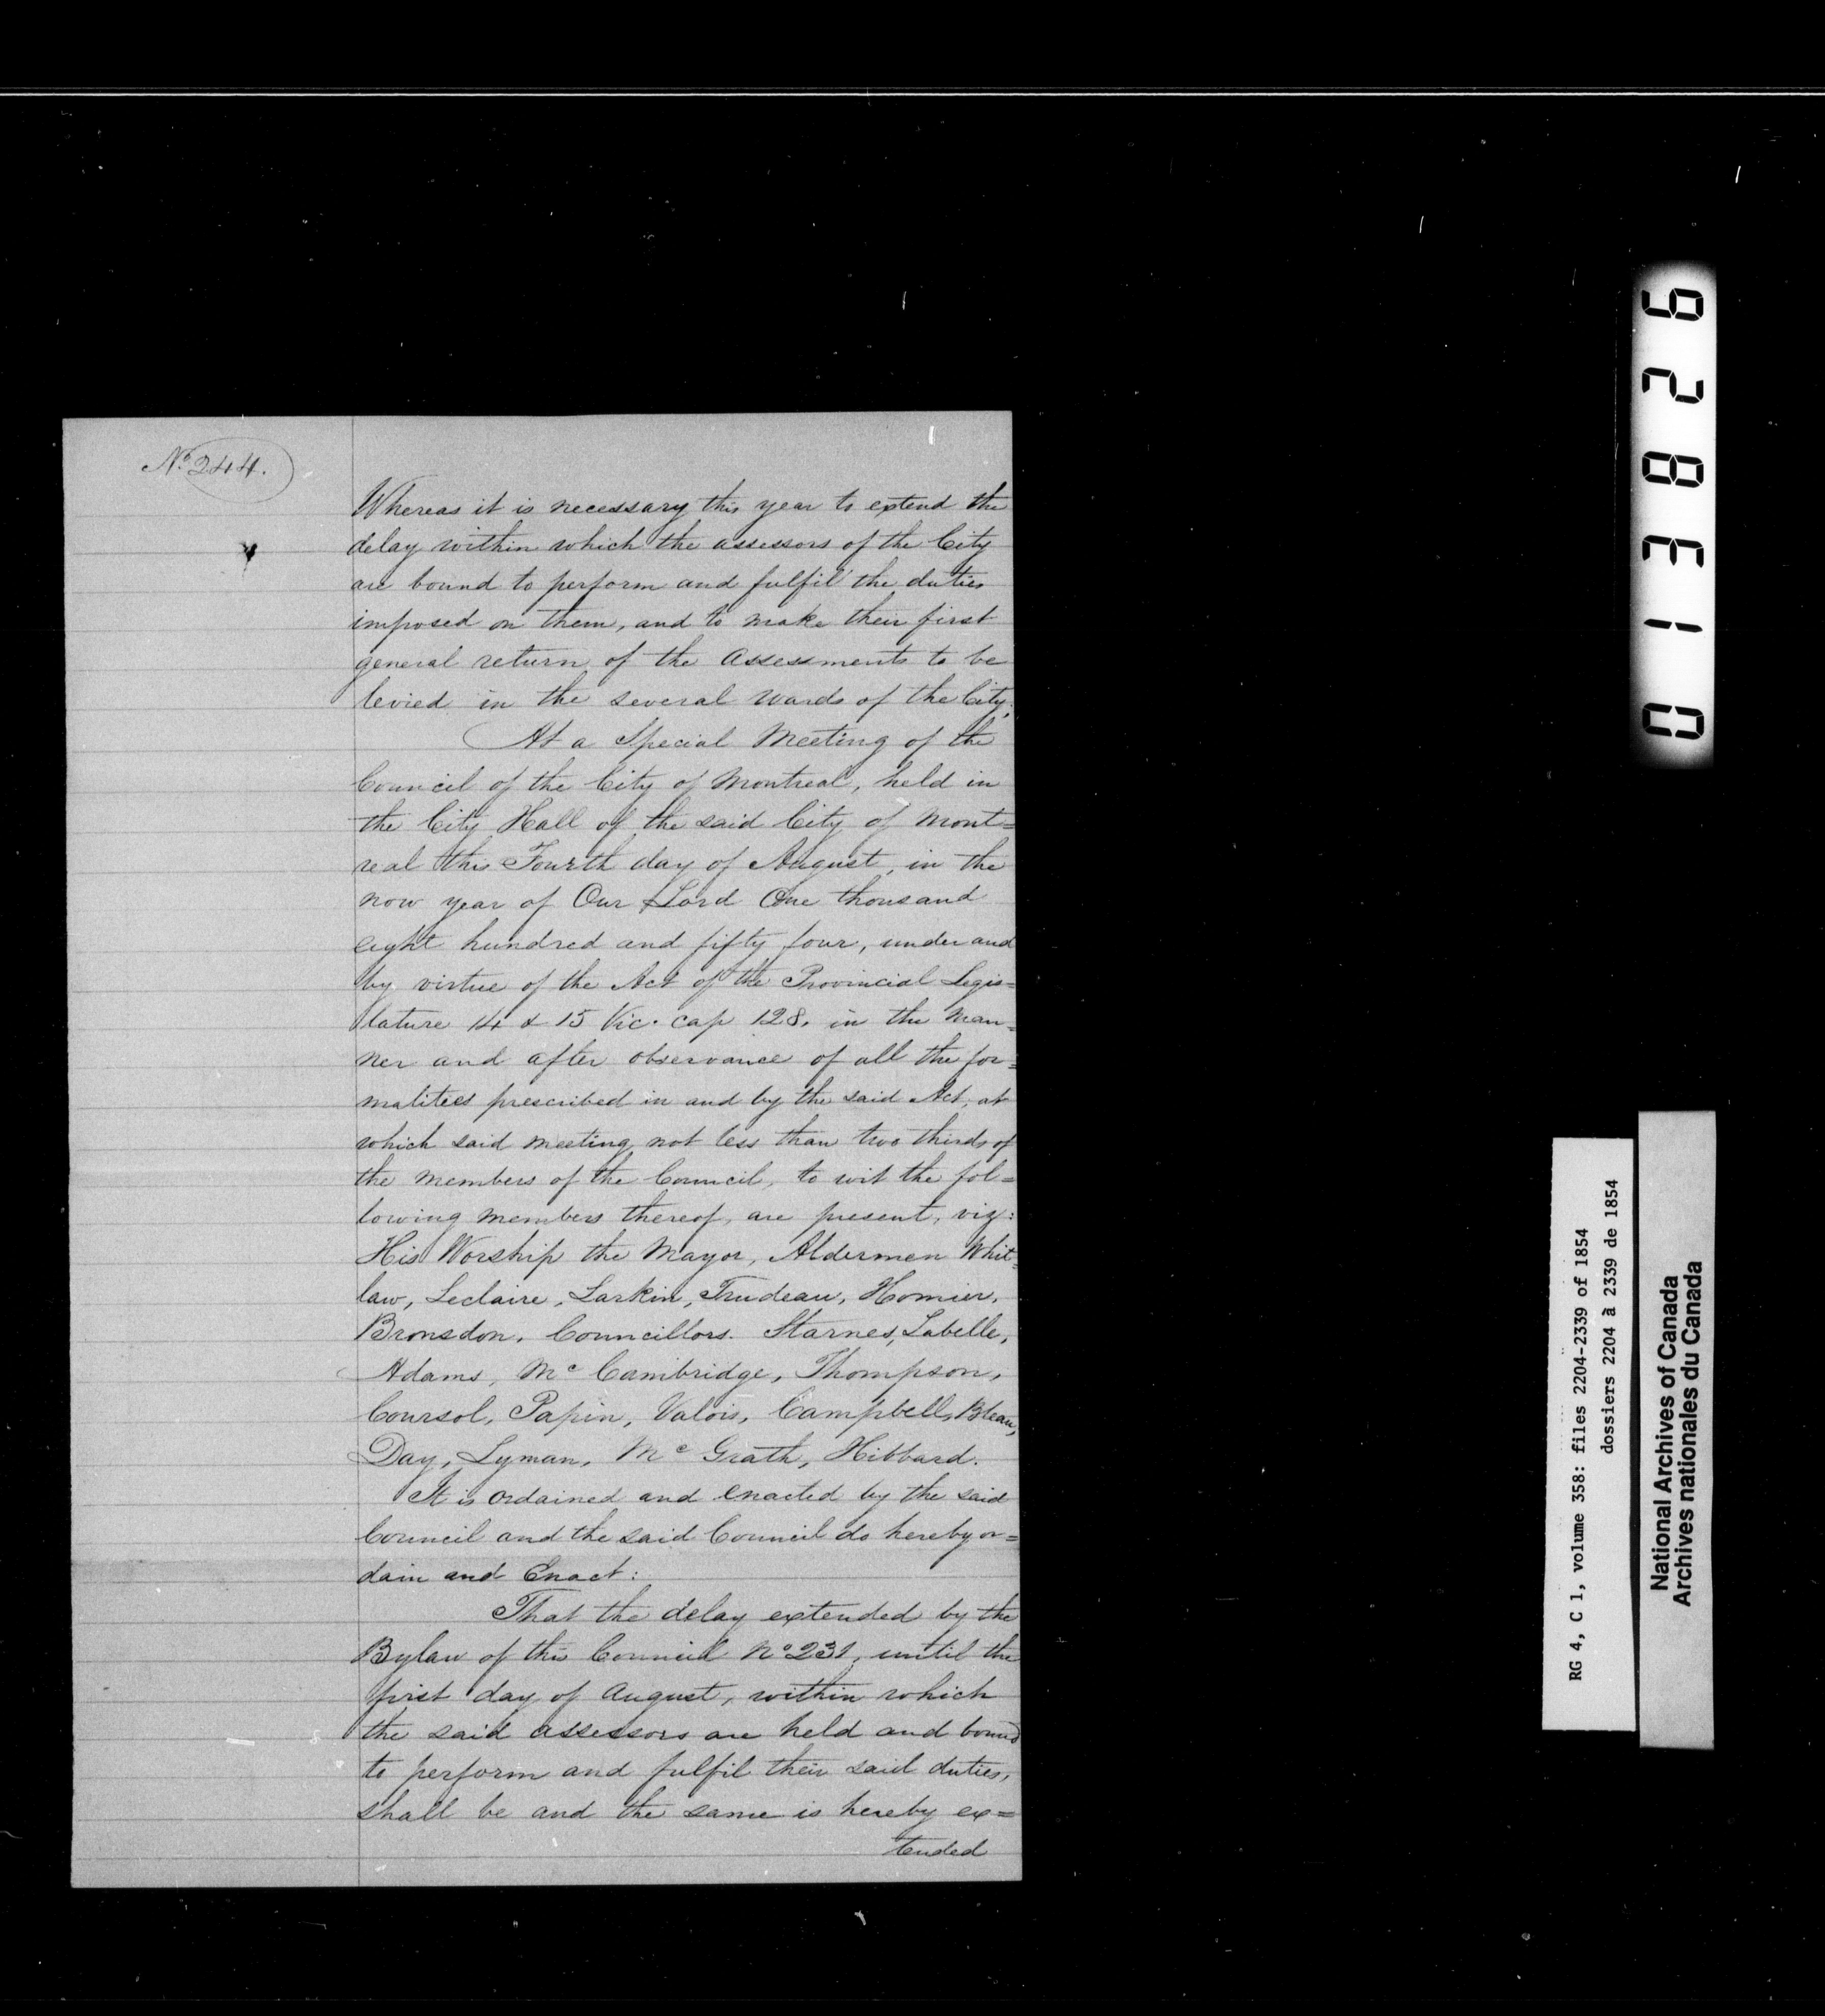 No. 244.
Whereas it is necessary this year to extend the
delay within which the assessors of the City
are bound to perform and fulfil the duties
imposed on them, and to make their first
general return of the Assessments to be
levied in the several wards of the City,
At a Special Meeting of the
Council of the City of Montreal, held in
the City Hall of the said City of Mont=
real this Fourth day of August, in the
now year of Our Lord One thousand
eight hundred and fifty four, under and
by virtue of the Act of the Provincial Legis=
lature 14 & 15 Vic. cap 128. in the man=
ner and after observance of all the for=
malities prescribed in and by the said Act, at
which said meeting not less than two thirds of
the members of the Council, to wit the fol=
lowing members thereof, are present, viz:
His Worship the Mayor, Aldermen Whit=
law, Leclaire, Larkin, Trudeau, Homier,
Bronsdon, Councillors. Starnes, Labelle,
Adams, Mc Cambridge, Thompson,
Coursol, Papin, Valois, Campbell, Bleau,
Day, Lyman, Mc Grath, Hibbard.
It is ordained and enacted by the said
Council and the said Council do hereby or=
dain and Enact:
That the delay extended by the
Bylaw of this Council No 231, until the
first day of August, within which
the said assessors are held and bound
to perform and fulfil their said duties,
shall be and the same is hereby ex=
tended
013826
RG 4, C 1, volume 358: files 2204-2339 of 1854
dossiers 2204 à 2339 de 1854
National Archives of Canada
Archives nationales du Canada